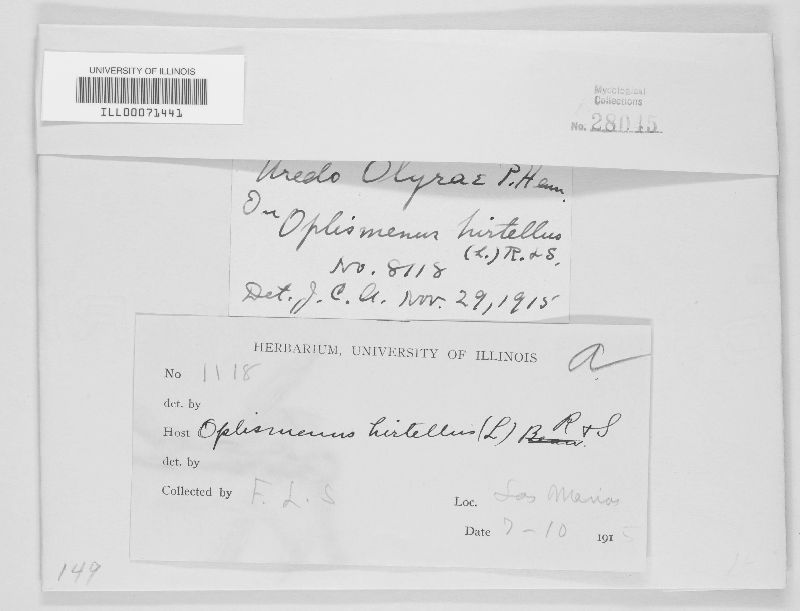 UNIVERSITY OF ILLINOIS
ILL00071441
Mycological
Collections
No. 28015
Uredo Olyrae P. Hem.
On Oplismenus hirtellus
(L.) R. & S.
No. 8118
Det. J. C. A. Nov. 29, 1915
HERBARIUM, UNIVERSITY OF ILLINOIS
a
No 1118
det. by
Host Oplismenus hirtellus (L) Beauv. R & S
det. by
Collected by F. L. S
Loc. Las Marias
Date 7-10 1915
149